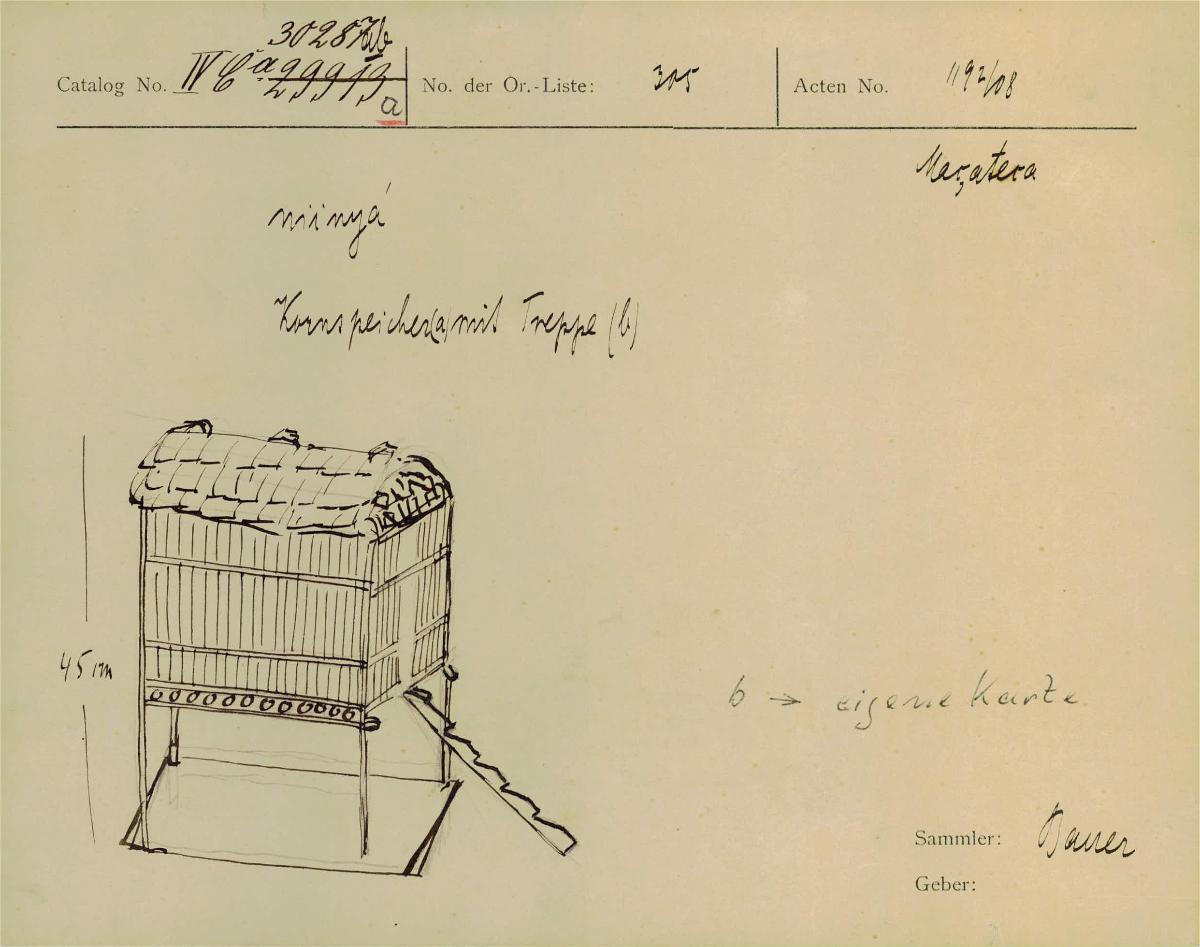 30287ab
Catalog No. IV Ca 29913 a
No. der Or.-Liste: 305
Acten No. 1192/08
Mazateca
niinyá
Kornspeicher(a) mit Treppe (b)
45 cm
b → eigene Karte
Sammler: Bauer
Geber: